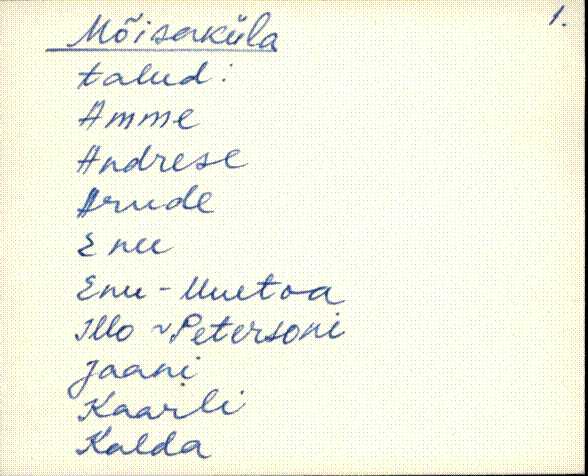 1.
Mõisaküla
talud:
Amme
Andrese
Arude
Enu
Enu - Uuetoa
Illo ~ Petersoni
Jaani
Kaarli
Kalda